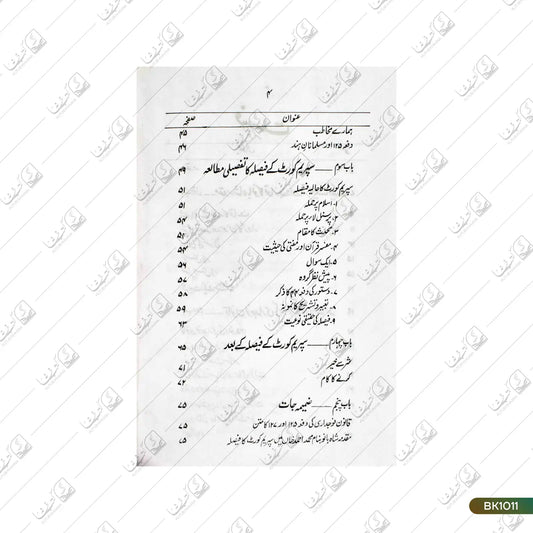 ۴
عنوان صفحہ
ہمارے مخاطب ۴۵
دفعہ ۱۲۵ اور مسلمانانِ ہند ۴۶
باب سوم —— سپریم کورٹ کے فیصلہ کا تفصیلی مطالعہ ۴۹
سپریم کورٹ کا حالیہ فیصلہ ۵۱
۱۔ اسلام پر حملہ ۵۱
۲۔ پرسنل لا پر حملہ ۵۲
۳۔ محدث کا مقام ۵۲
۴۔ مفسر قرآن اور مفتی کی حیثیت ۵۴
۵۔ ایک سوال ۵۶
۶۔ پیش نظر گروہ ۵۷
۷۔ دستور کی دفعہ ۴۴ کا ذکر ۵۸
۸۔ تعبیر و تشریح کا نمونہ ۵۹
۹۔ فیصلہ کی حقیقی نوعیت ۶۳
باب چہارم —— سپریم کورٹ کے فیصلہ کے بعد ۶۵
شر سے خیر ۷۱
کرنے کا کام ۷۲
باب پنجم —— ضمیمہ جات ۷۵
قانون فوجداری کی دفعہ ۱۲۵ اور ۱۲۷ کا متن ۷۵
مقدمہ شاہ بانو بنام محمد احمد خاں میں سپریم کورٹ کا فیصلہ ۷۵
BK1011